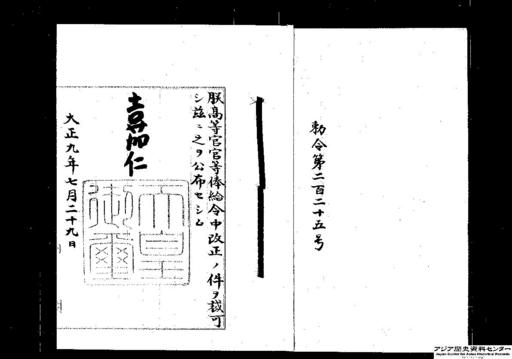 勅令第二百二十五号
朕高等官官等俸給令中改正ノ件ヲ裁可
シ茲ニ之ヲ公布セシム
嘉仁
天皇御璽
大正九年七月二十九日
アジア歴史資料センター
Japan Center for Asian Historical Records